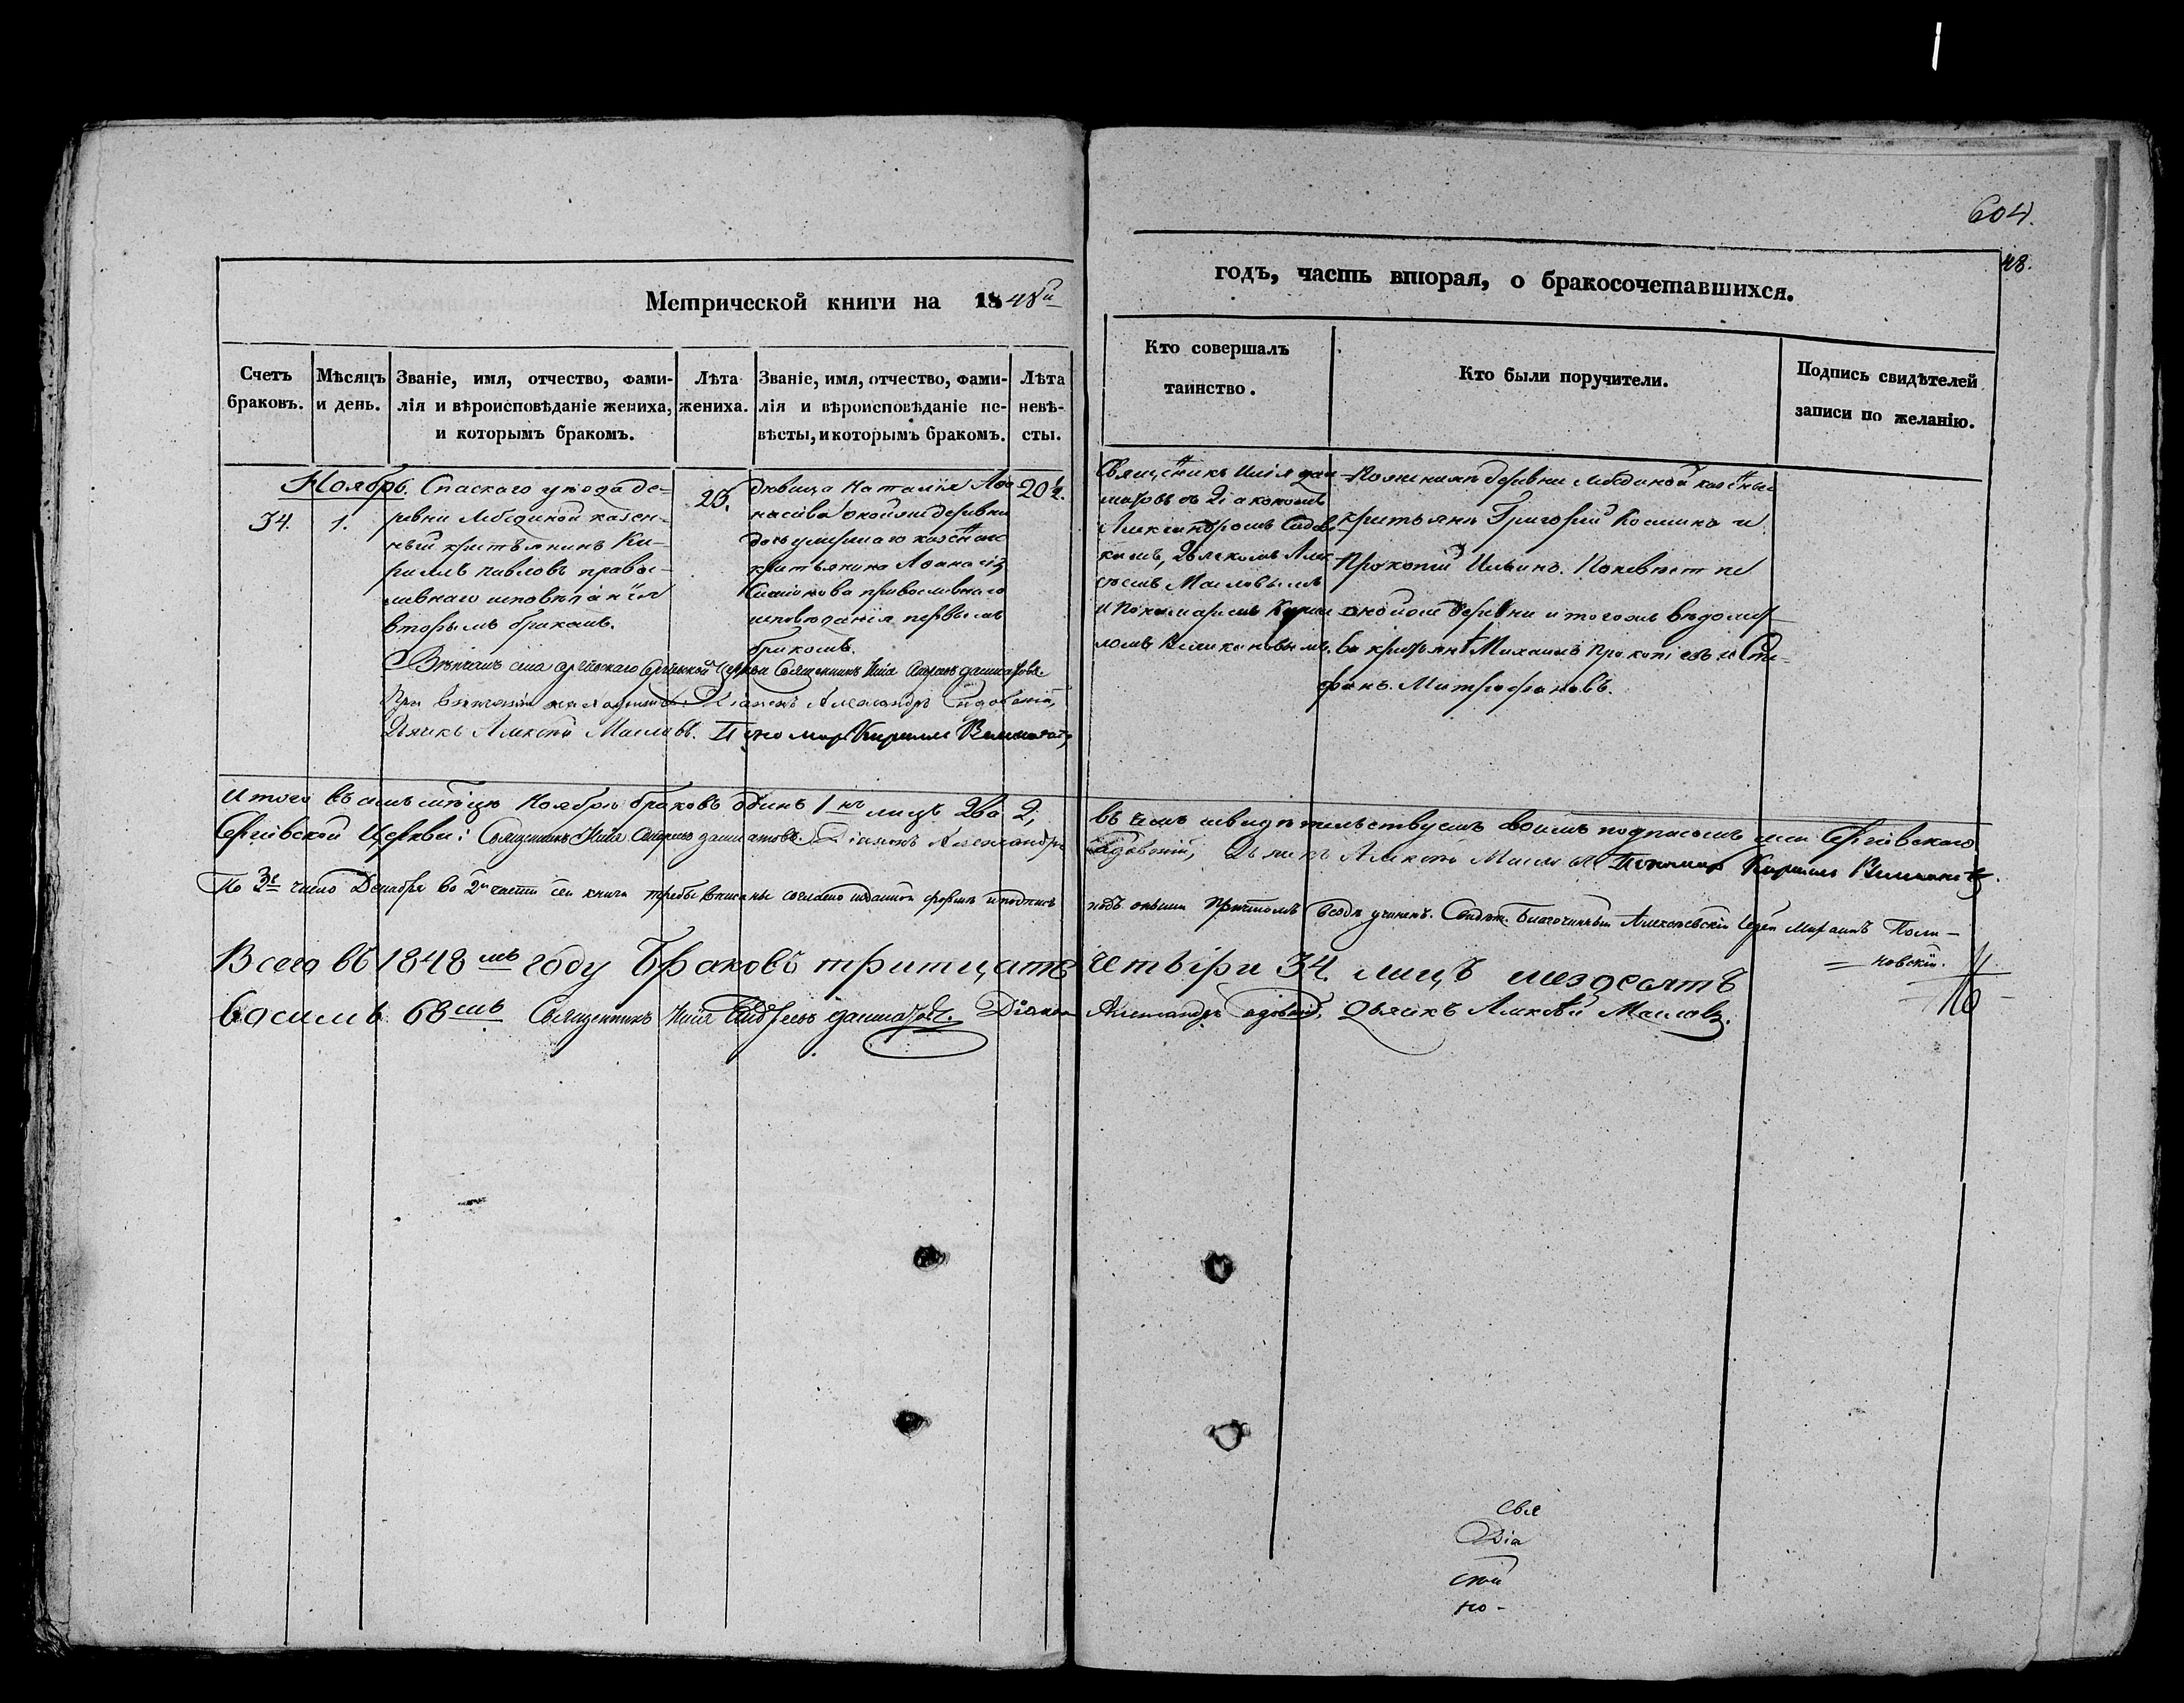 604.
48.
Метрической книги на 1848й
годъ, часть вторая, о бракосочетавшихся.
Счетъ браковъ.
Мѣсяцъ и день.
Званіе, имя, отчество, фами-
лія и вѣроисповѣданіе жениха,
и которымъ бракомъ.
Лѣта
жениха.
Званіе, имя, отчество, фами-
лія и вѣроисповѣданіе не-
вѣсты, и которымъ бракомъ.
Лѣта
невѣ-
сты.
Кто совершалъ
таинство.
Кто были поручители.
Подпись свидѣтелей
записи по желанію.
Ноябрь.
34.
1.
Спаскаго уѣзда де-
ревни Лебединой казен-
ный крестьянинъ Ки-
рилъ Павловъ правос-
лавнаго исповѣданія
вторымъ бракомъ.
25.
дѣвица Наталія Афа
насіева оной же деревни
дочь умершаго казеннаго
крестьянина Афанасія
Симіонова православнаго
исповѣданія первымъ
бракомъ.
20½.
Священникъ Илія даш
матовъ съ Діакономъ
Александромъ Садов
кимъ, Дьячкомъ Алек
сѣемъ Масловымъ
и Пономаремъ Кирил
ломъ
По женихѣ деревни Лебединой казенные
крестьяне Григорій Косминъ и
Прокопій Ильинъ. По невѣстѣ
оной же деревни и того же вѣдомст
ва крестьяне Михаилъ Прокопіевъ и Сте-
фанъ Митрофановъ.
Вѣнчалъ села Сергіевскаго Сергіевской Церкви Священникъ Илія
При вѣнчаніи находились: Діаконъ Александръ
Дьячкъ Алексѣй Масловъ. Пономарь Кириллъ
Итого въ семъ мѣсяцѣ Ноябрѣ браковъ одинъ 1нъ лицъ два 2,
въ чемъ и свидѣтельствуемъ своимъ подписомъ села Сергіевскаго
Сергіевской Церкви: Священникъ Илія Діаконъ Александръ
Дьячкъ Алексѣй Масловъ Пономарь Кириллъ
По 3е число Декабря во 2й части сей книги требы вписаны согласно изданной формѣ и подпись
подъ оными Причтомъ вездѣ учинен. Свидѣт. Благочинный Іерей
новскій.
Всего въ 1848мъ году Браковъ тритцать
четыре 34. лицъ шездесятъ
восимь 68мъ Священникъ Илія Діаконъ
Александръ Дьячкъ Алексѣй Масловъ.
Свя
Діа
скій
но-